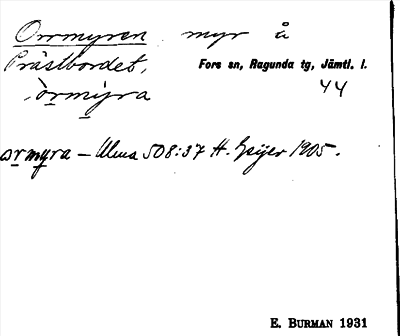 Orrmyren myr å
Prästbordet, Fors sn, Ragunda tg, Jämtl. l.
,òrmỳra 44
orrmyra – Ulma 508:37 H. Geijer 1905.
E. BURMAN 1931